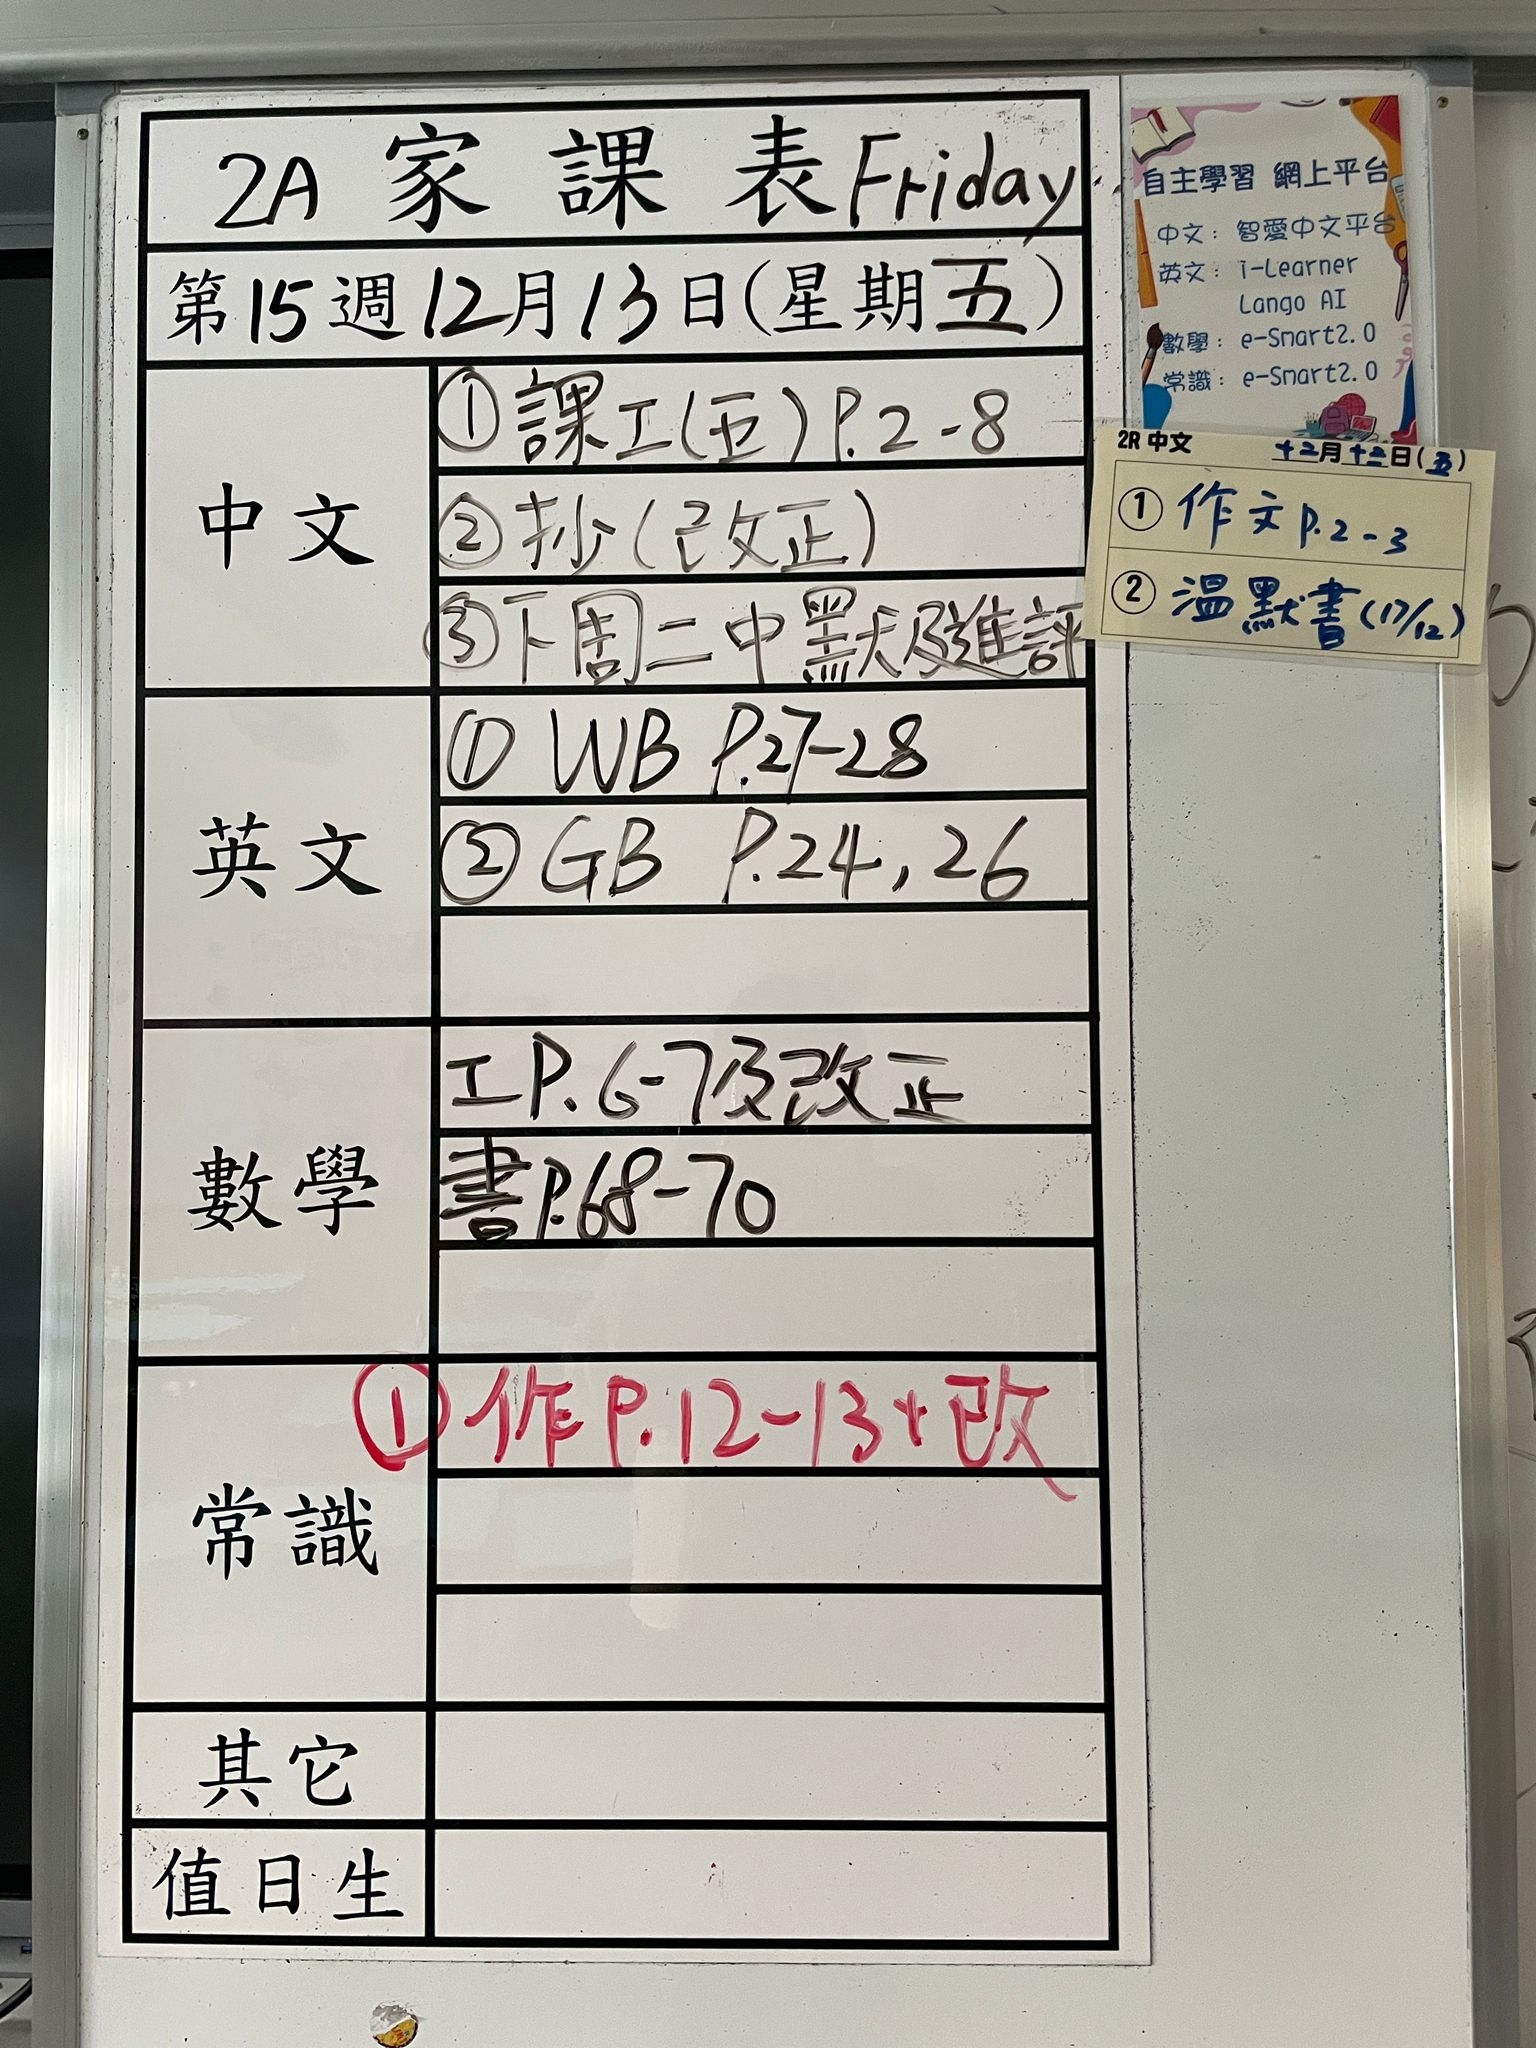 2A 家課表 Friday
第15週12月13日(星期五)
中文
①課工(五)P.2-8
②抄(改正)
③下周二中默及進評
英文
① WB P.27-28
② GB P.24,26
數學
工P.6-7及改正
書P.68-70
常識
①作P.12-13+改
其它
值日生
自主學習 網上平台
中文：智愛中文平台
英文：i-Learner
Lango AI
數學：e-Smart2.0
常識：e-Smart2.0
2R 中文 十二月十三日(五)
① 作文P.2-3
② 溫默書(17/12)